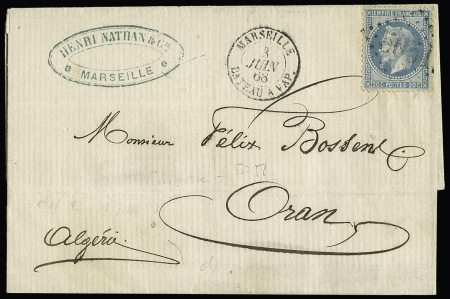 HENRI NATHAN & Cie
MARSEILLE
MARSEILLE
3
JUIN
68
BATEAU A VAP.
EMPIRE FRANÇAIS
20C POSTES 20C
Monsieur Félix
Oran
Algérie